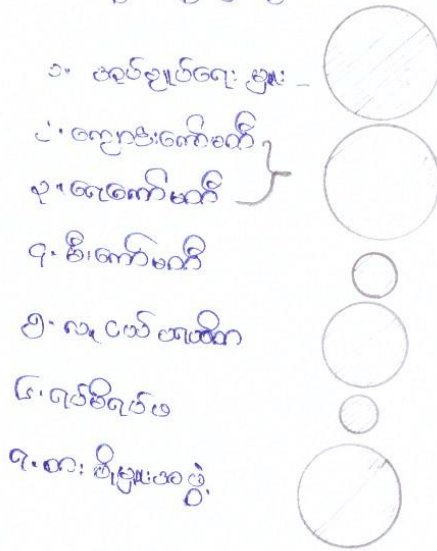 ၁. အုပ်ချုပ်ရေးမှူး
၂. ကျောင်းကော်မတီ
၃. ရေကော်မတီ
၄. မီးကော်မတီ
၅. လူငယ်
၆. ရပ်မိရပ်ဖ
၇. အဖွဲ့